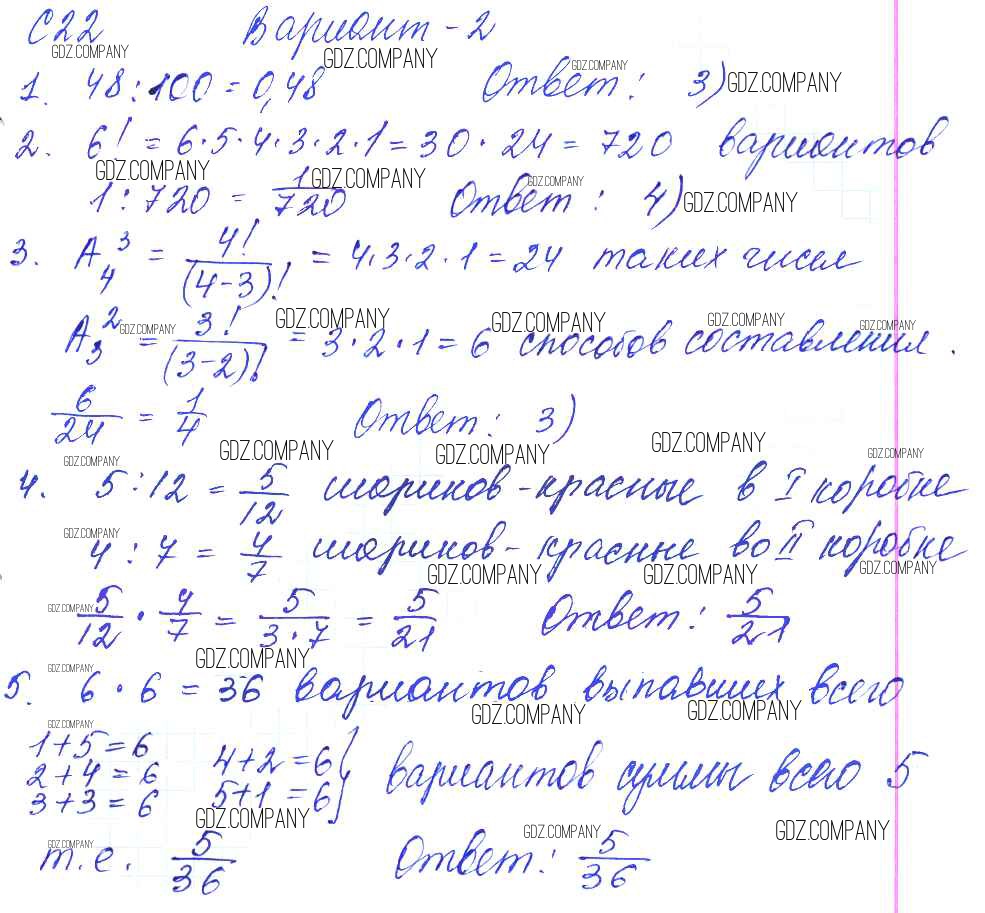 С22 Вариант - 2
GDZ.COMPANY GDZ.COMPANY
1. 48 : 100 = 0,48 Ответ: 3)
GDZ.COMPANY GDZ.COMPANY
2. 6! = 6·5·4·3·2·1 = 30 · 24 = 720 вариантов
GDZ.COMPANY GDZ.COMPANY GDZ.COMPANY
1 : 720 = 1/720 Ответ: 4)
GDZ.COMPANY
3. A₄³ = 4!/(4-3)! = 4·3·2·1 = 24 таких чисел
GDZ.COMPANY GDZ.COMPANY GDZ.COMPANY GDZ.COMPANY GDZ.COMPANY
A₃² = 3!/(3-2)! = 3·2·1 = 6 способов составления.
6/24 = 1/4 Ответ: 3)
GDZ.COMPANY GDZ.COMPANY GDZ.COMPANY GDZ.COMPANY GDZ.COMPANY
4. 5 : 12 = 5/12 шариков - красные в I коробке
GDZ.COMPANY
4 : 7 = 4/7 шариков - красные во II коробке
GDZ.COMPANY GDZ.COMPANY GDZ.COMPANY
GDZ.COMPANY
5/12 · 4/7 = 5/3·7 = 5/21 Ответ: 5/21
GDZ.COMPANY GDZ.COMPANY
5. 6 · 6 = 36 вариантов выпавших всего
GDZ.COMPANY GDZ.COMPANY GDZ.COMPANY
1+5=6
2+4=6
3+3=6
4+2=6
5+1=6 } вариантов суммы всего 5
GDZ.COMPANY GDZ.COMPANY GDZ.COMPANY
GDZ.COMPANY
т.е. 5/36 Ответ: 5/36